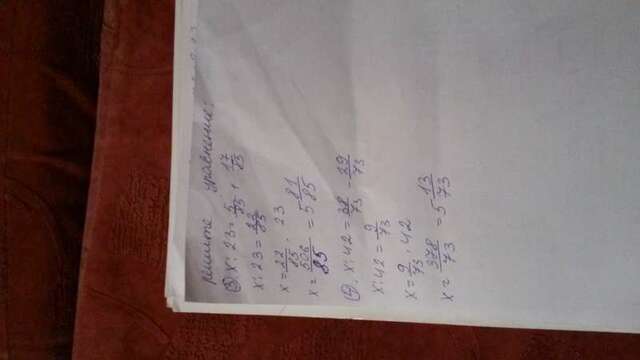 решите уравнение:
③ x : 23 = 5/85 + 17/85
x : 23 = 22/85
x = 22/85 · 23
x = 506/85 = 5 81/85
④ x : 42 = 38/73 - 29/73
x : 42 = 9/73
x = 9/73 · 42
x = 378/73 = 5 13/73